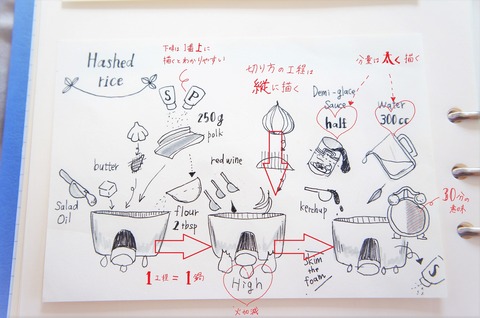 Hashed
rice
下味は1番上に
描くとわかりやすい
S P
250g
polk
切り方の工程は
縦に描く
分量は太く描く
Demi-glace
Sauce
half
Water
300cc
butter
Salad
Oil
flour
2 tbsp
red wine
ketchup
30分の
意味
1工程=1鍋
High
火加減
skim
the
foam
S